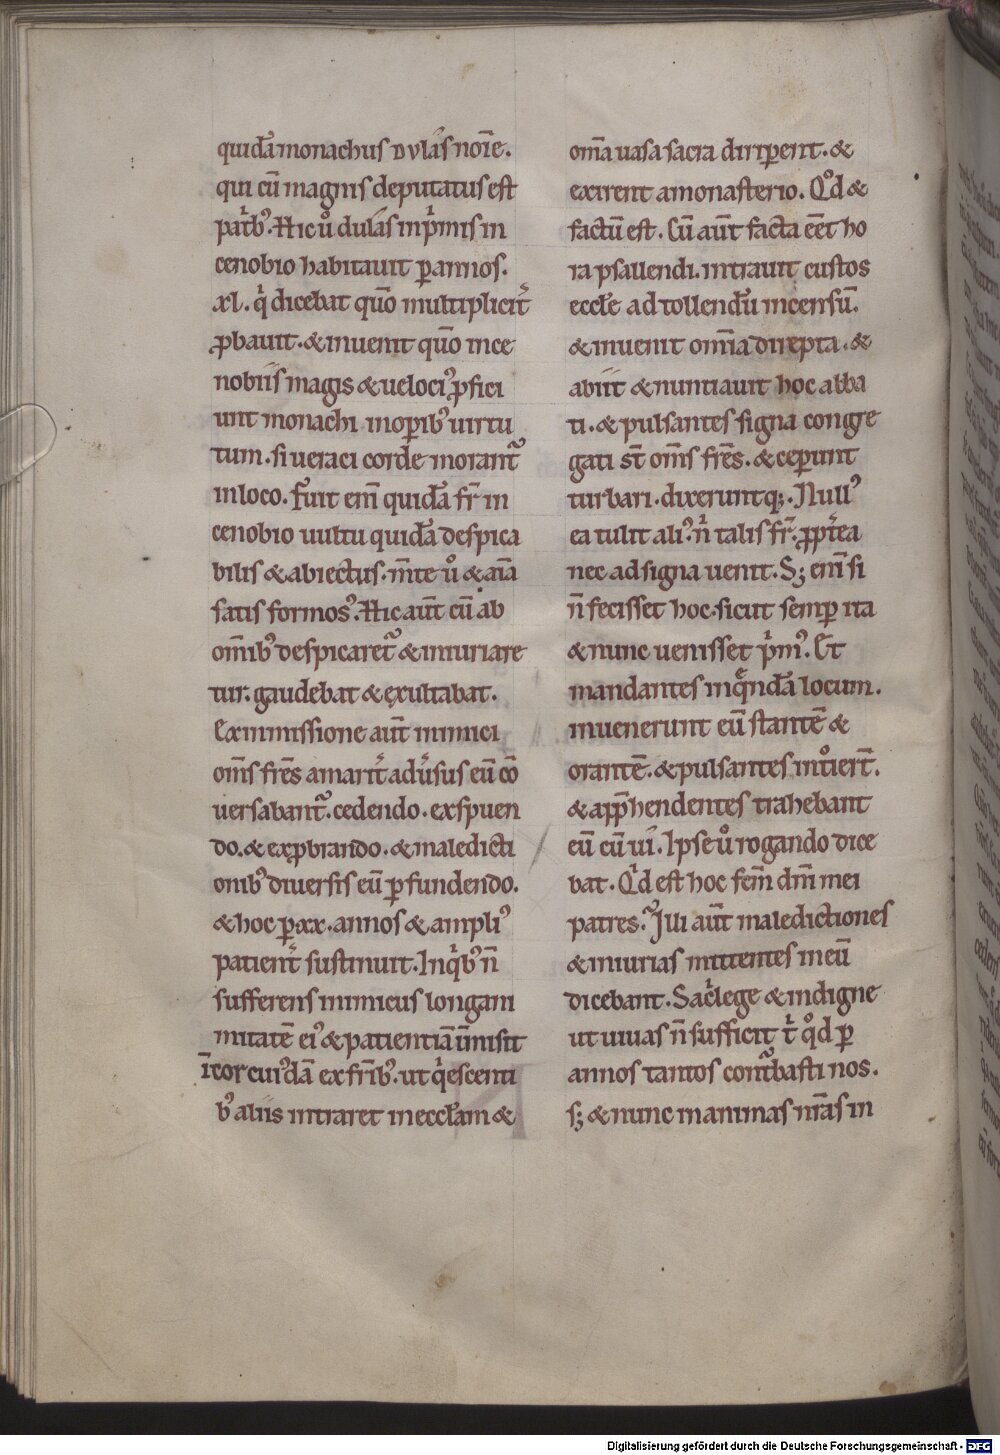 quidā monachus dulas noīe.
qui cū magnis deputatus est
patⁱbꝰ. Hic uͦ dulas inpͥmis in
cenobio habitauit ꝑ annos.
xl. qͥ dicebat quō multiplicit͛
ꝓbauit. & inuenit quō ince
nobiis magis & uelociꝰ ꝓfici
unt monachi inoꝑibꝰ uirtu
tum. si ueraci corde morant᷑
inloco. Fuit eni̅ quidā fr̄ in
cenobio uultu quidā despica
bilis & abiectus. m̄te uͦ & aīa
satis formosꝰ. Hic aūt cū ab
om̄ibꝰ despicaret᷑ & iniuriare
tur. gaudebat & exultabat.
Exinmissione aūt inimici
om̄s fr̄es amarit͛ adu͛sus eū cō
uersabant᷑. cedendo. exspuen
do. & exꝓbrando. & maledicti
onibꝰ diuersis eū ꝑfundendo.
& hoc ꝑ xx. annos & ampliꝰ
patient͛ sustinuit. Inqͥbꝰ n̄
sufferens inimicus longani
mitatē eiꝰ & patientiā īmisit
ī cor cuiꝰdā ex fr̄ibꝰ. ut qͥescenti
bꝰ aliis intraret in eccłam &
om̄ia uasa sacra diriꝑent. &
exirent amonasterio. Qͦd &
factū est. Cū aūt facta eēt ho
ra psallendi. intrauit custos
eccłe ad tollendū incensū.
& inuenit om̄ia direpta. &
abiit & nuntiauit hoc abba
ti. & pulsantes signa congre
gati st̄ om̄s fr̄es. & ceꝑunt
turbari. dixeruntq;. Nullꝰ
ea tulit aliꝰ. nͥ talis fr̄. ꝓpt͛ea
nec ad signa uenit. S; eni̅ si
n̄ fecisset hoc. sicut semꝑ ita
& nunc uenisset pͥmꝰ. Et
mandantes inqͣ̄ndā locum.
inuenerunt eū stantē &
orantē. & pulsantes intͦiert̄.
& app̄hendentes trahebant
eū cū ui. Ipse uͦ rogando dice
bat. Qͥd est hoc fem̄ dn̄i mei
patres. Illi aūt maledictiones
& iniurias mittentes in eū
dicebant. Sac͛lege & indigne
ut uiuas n̄ sufficit tͥ qͦd ꝑ
annos tantos contͣbasti nos.
s; & nunc manimas nr̄as in